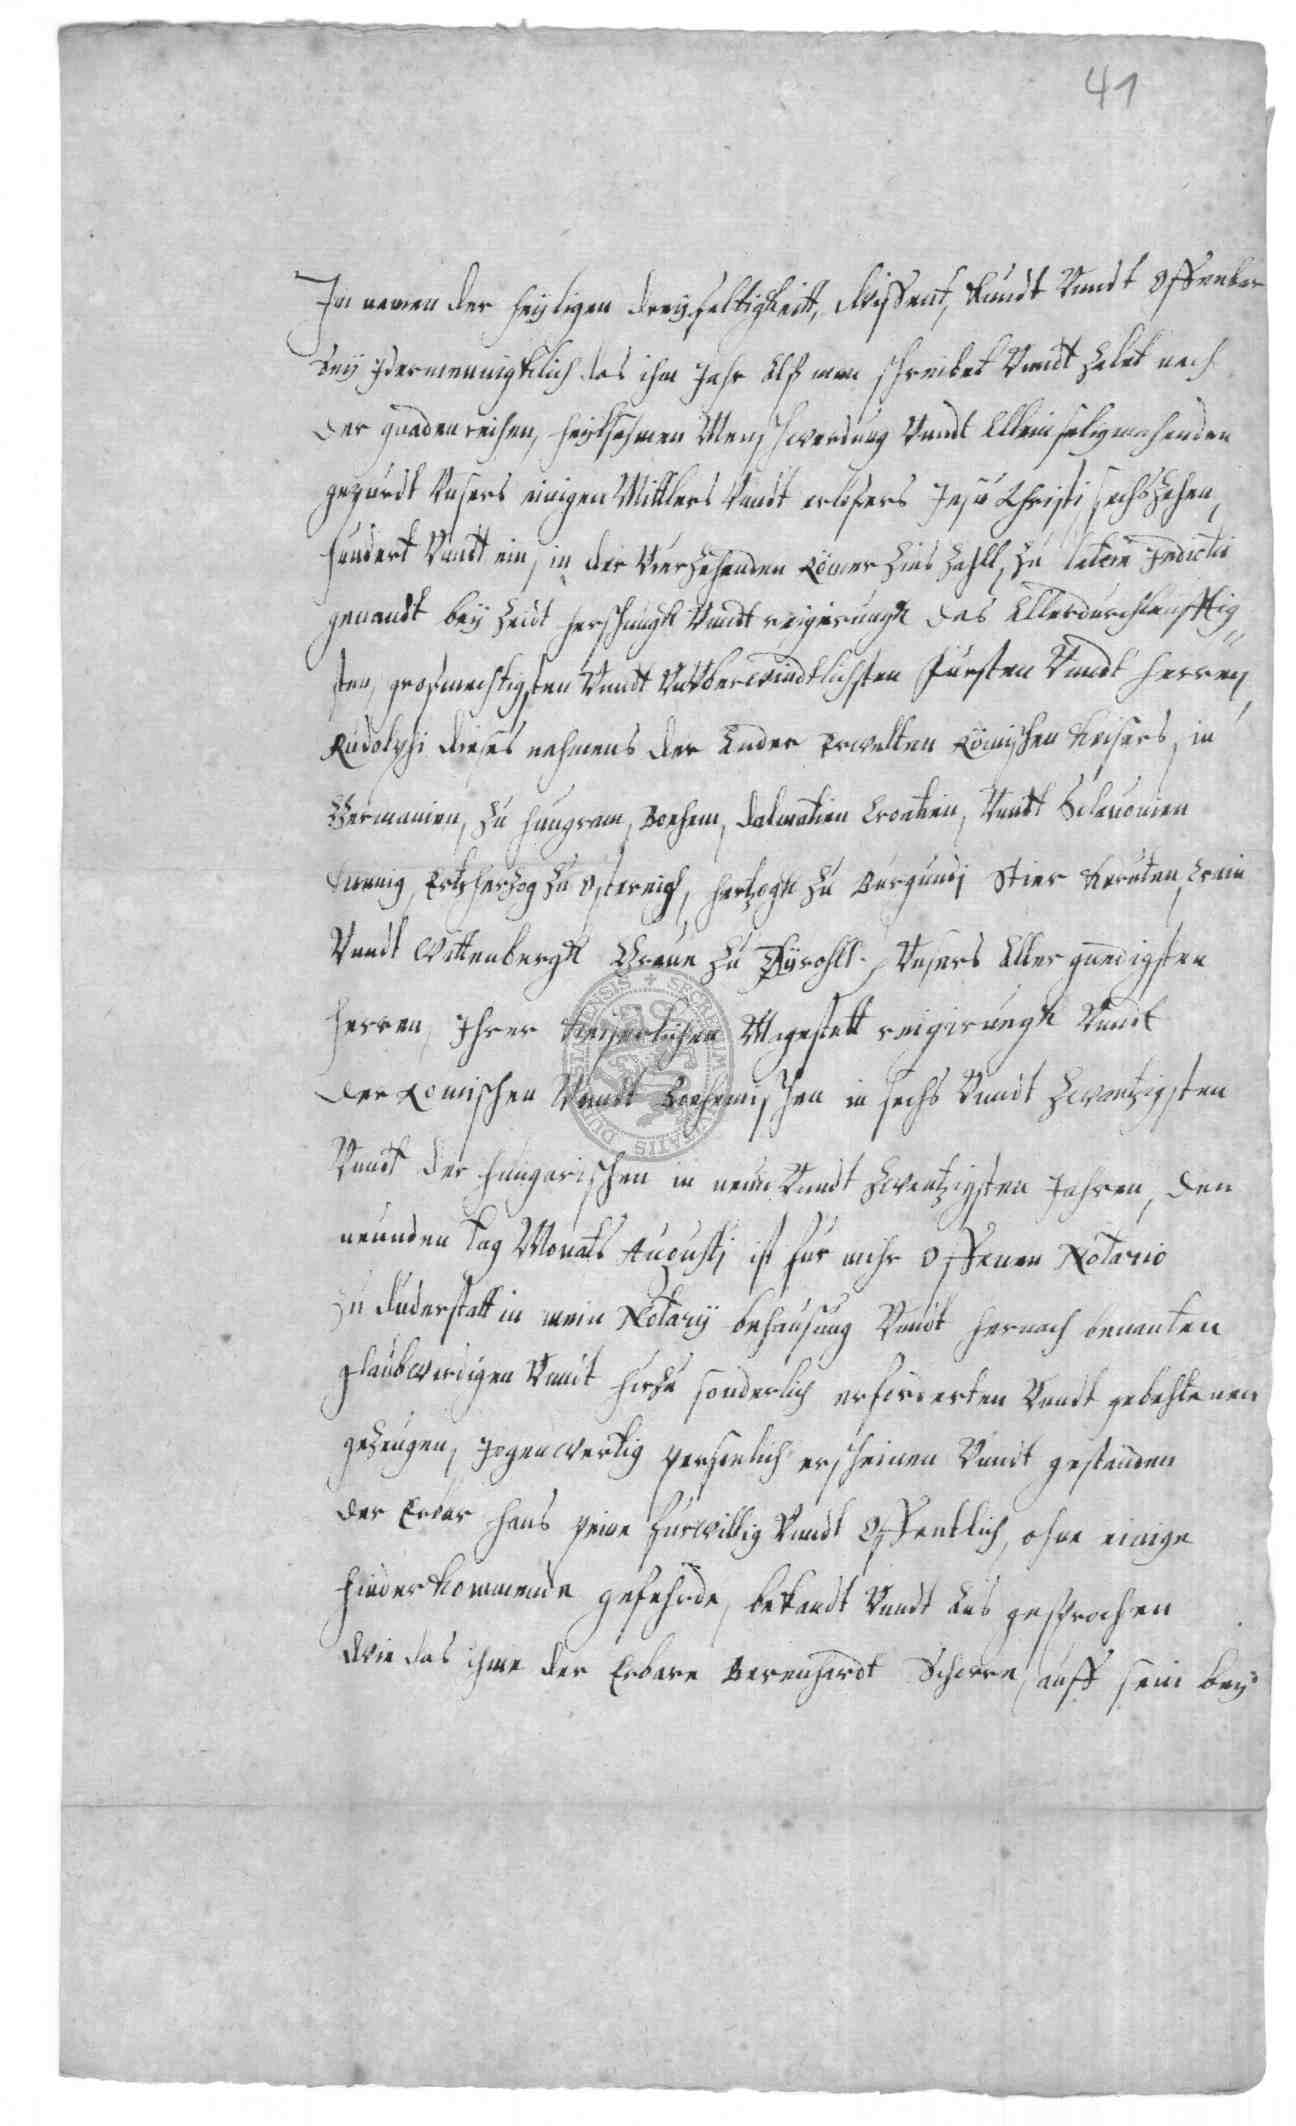 41
Im namen der heyligen dreyfeltigkeitt, Wissent, Kundt Vnndt Offenbar
seÿ Jdermennigklich das ihm Jahr Alß man schreibet Vnndt Zelet nach
der gnadenreichen, heylsahmen Menschwerdung Vnndt Allein seligmachenden
gepurdt Vnsers einigen Mittlers Vnndt erlösers Jesu Christi sechszehen
hundert Vnndt ein, in der Vierzehenden Römer Zins Zahll, Zu latein Indictio
genandt beÿ Zeidt herschungk Vnndt reigirungk des Allerdurchleuchtig
sten, großmechtigsten Vnndt Vnüberwindtlichsten Fürsten Vnndt herren
Rudolphi dieses nahmens der Ander Erwelten Römischen Keisers, in
Germanien, Zu Hungram, Boehem, Dalmatien Croatien, Vnndt Sclauonien
Koenig, Ertzhertzog Zu Ostereigh, hertzogk Zu Burgundj Stier Kernten, Crain
Vnndt Wittenbergk Graue Zu Tÿrohll. Vnsers Aller gnedigsten
herren, Ihrer Keyserlichen Magestatt reigirungk Vnndt
der Romischen Vnndt Boehemischen in sechs Vnndt Zwantzigsten
Vnndt der hungarischen in neun Vnndt Zwentzigsten Jahren, den
neunden tag Monats Augusti ist für mihr Offenen Notario
Zu Duderstatt in mein Notarÿ behausung Vnndt hernach benanten
glaubwirdigen Vnndt hirzu sonderlich erforderten Vnndt gebehtenen
gezeugen, Jegenwertig perschenlich erscheinen Vnndt gestanden
der Erbar Hans peine furwillig Vnndt Offentlich, ohne einige
hinderkommende gefehrde, bekandt Vnndt Aus gesprochen
Wie das ihme der Erbare Berenhardt Scherre, auff sein beÿ